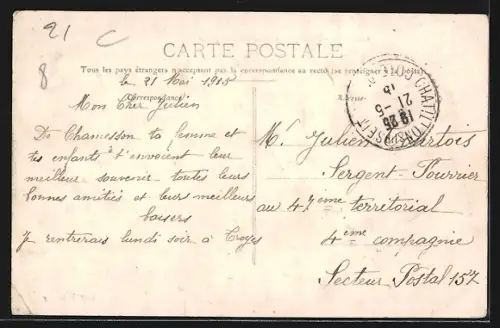 21
C
8
CARTE POSTALE
Tous les pays étrangers n'acceptent pas la correspondance au recto (se renseigner à la poste)
le 21 Mai 1915
Correspondance
Mon Cher Julien
De Chamesson ta femme et
tes enfants t'envoient leur
meilleur souvenir toutes leurs
bonnes amitiés et leurs meilleurs
baisers
Je rentrerais lundi soir à Troyes
CHATILLON-S-SEINE
21-5
15
Mr Julien
Sergent-Fourrier
au 47ème territorial
4ème compagnie
Secteur Postal 157